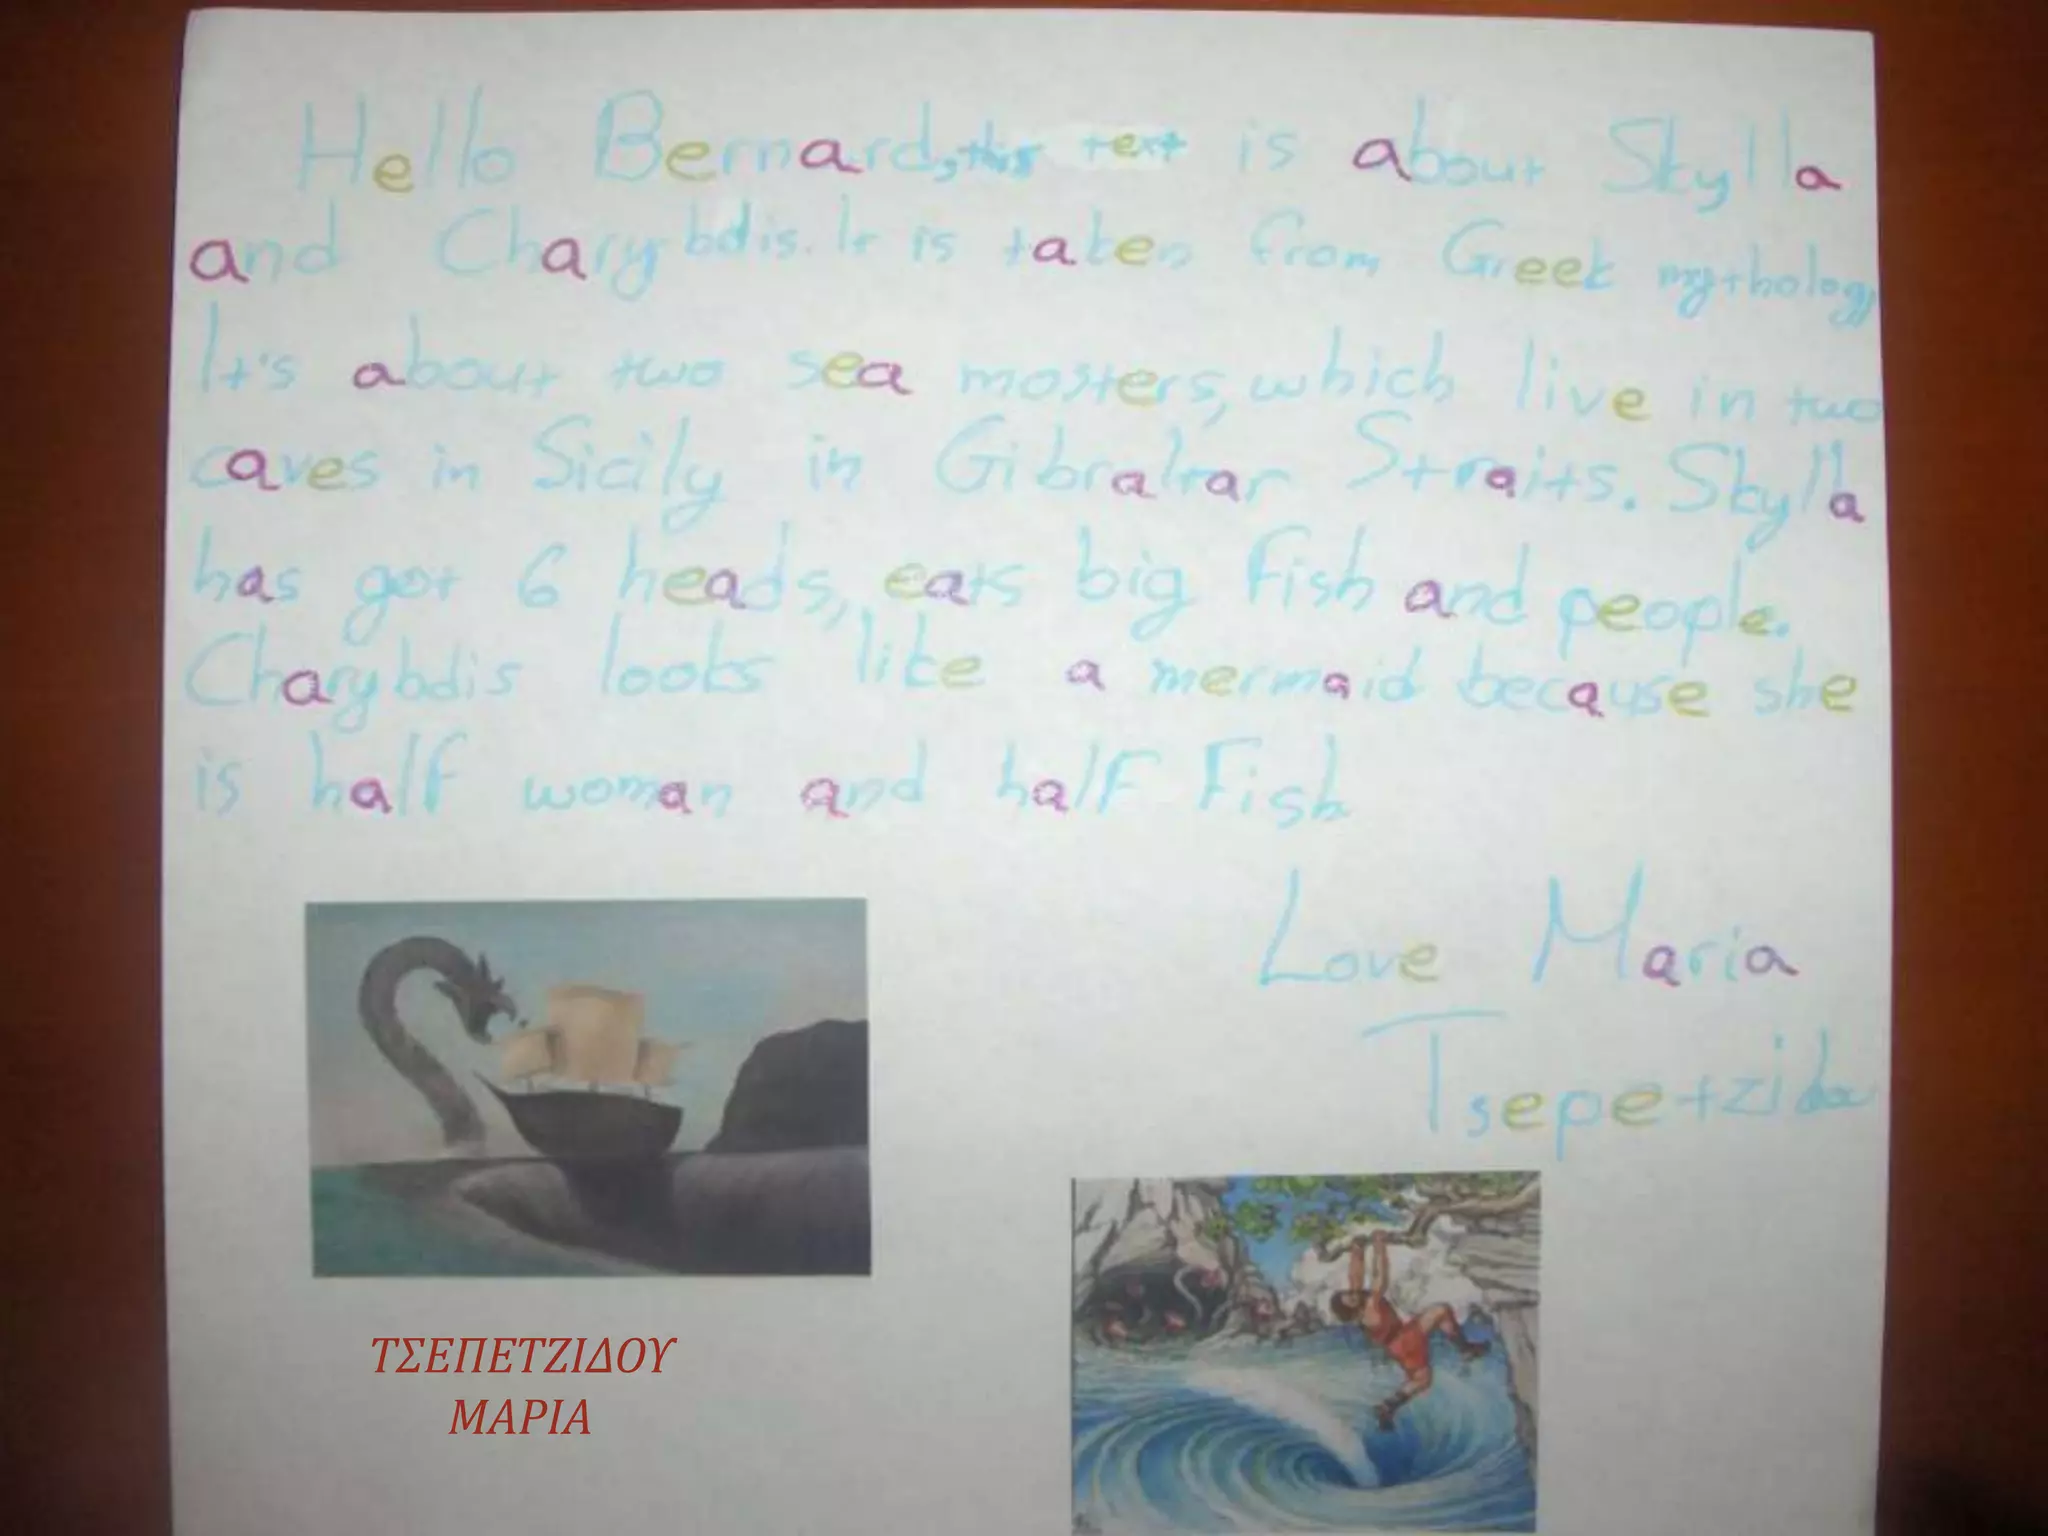 Hello Bernard, this text is about Skylla
and Charybdis. It is taken from Greek mythology
It's about two sea mosters, which live in two
caves in Sicily in Gibraltar Straits. Skylla
has got 6 heads, eats big fish and people.
Charybdis looks like a mermaid because she
is half woman and half Fish
Love Maria
Tsepetzidou
ΤΣΕΠΕΤΖΙΔΟΥ
ΜΑΡΙΑ